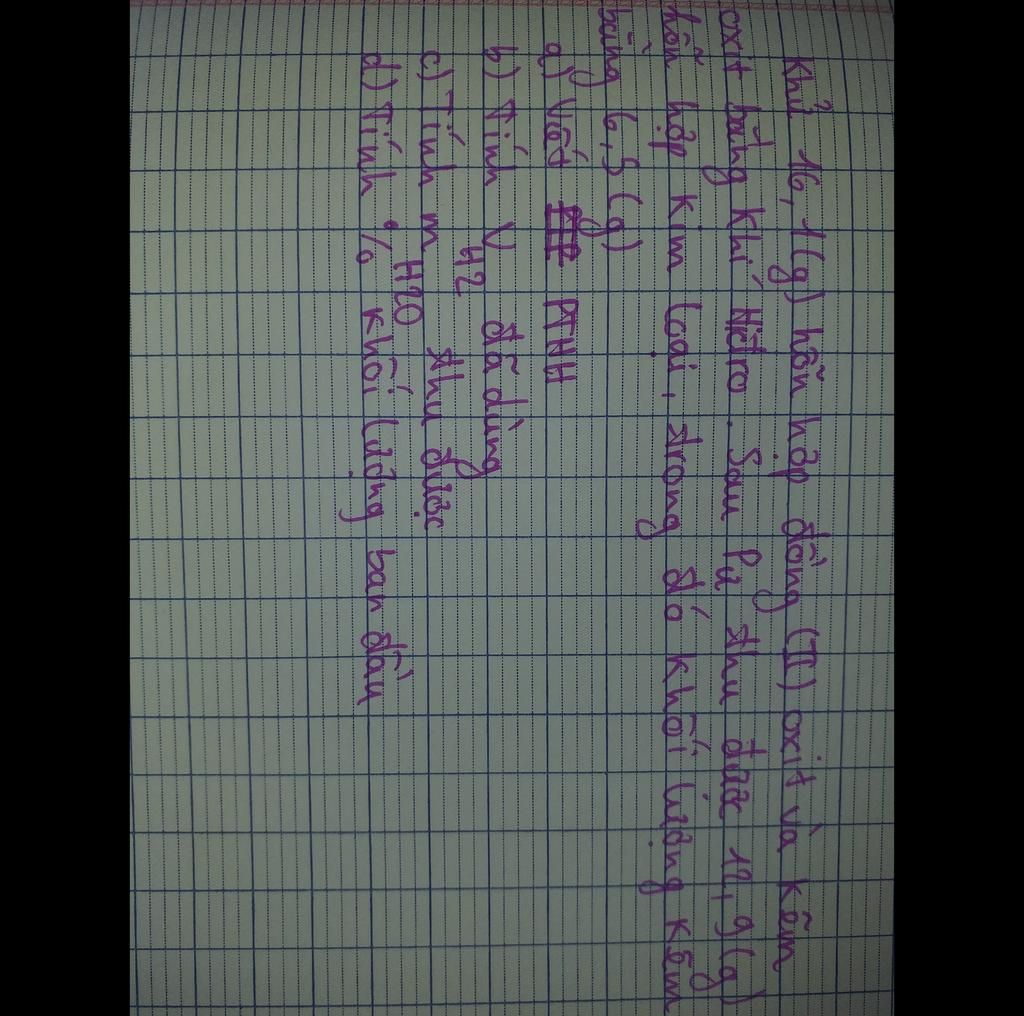 Khử 16,1(g) hỗn hợp đồng (II) oxit và kẽm
oxit bằng khí Hiđro. Sau pư thu được 12,9(g)
hỗn hợp kim loại, trong đó khối lượng kẽm
bằng 6,5 (g)
a) Viết PTHH
b) Tính V H2 đã dùng
c) Tính m H2O thu được
d) Tính % khối lượng ban đầu